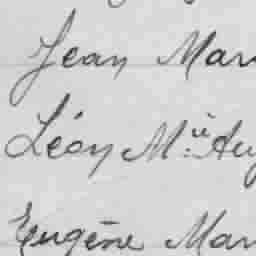 Jean Mar
Léon M.ie Aug
Eugène Mar